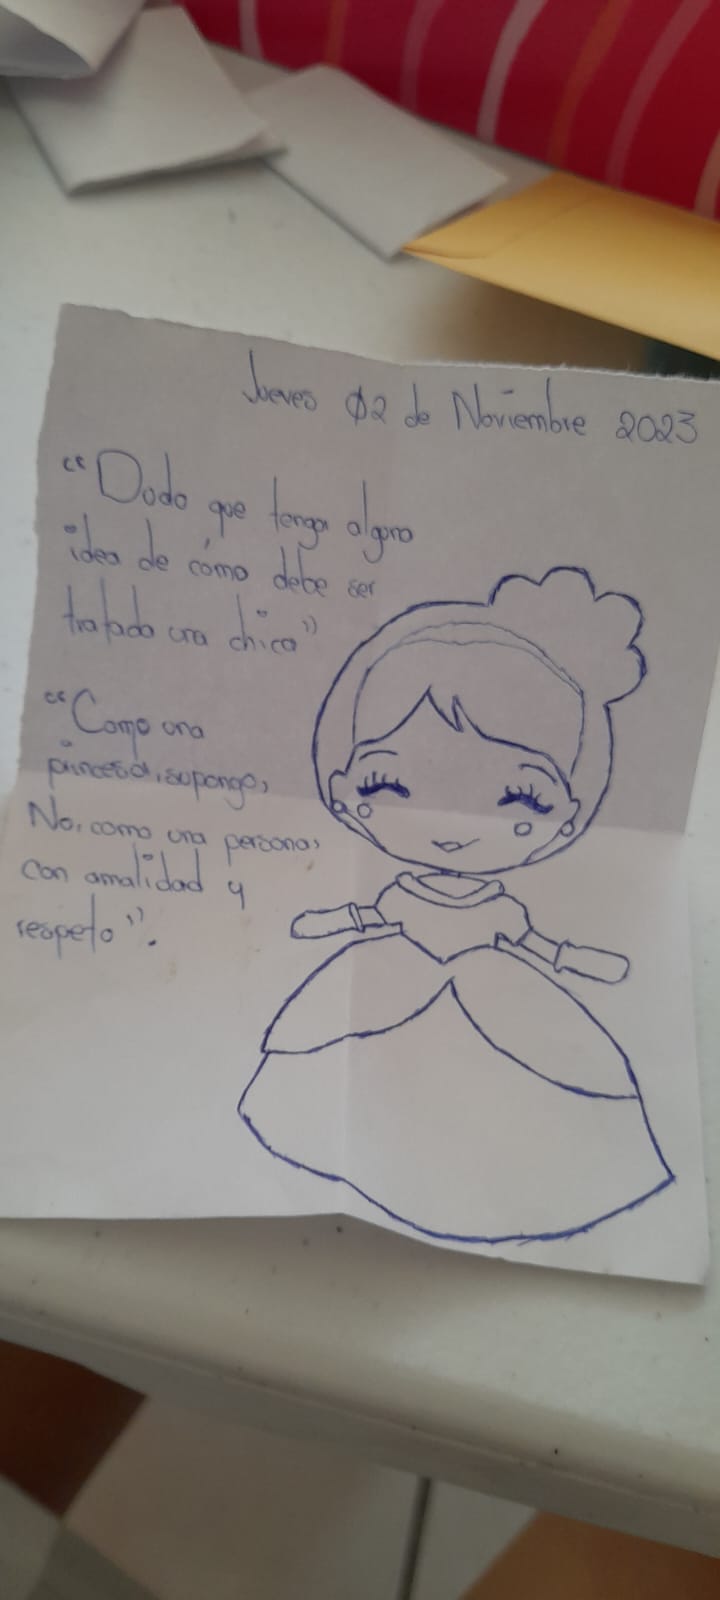 Jueves 02 de Noviembre 2023
"Dudo que tenga alguna
idea de cómo debe ser
tratado una chica"
"Como una
princesa, supongo,
No, como una persona,
con amalidad y
respeto".